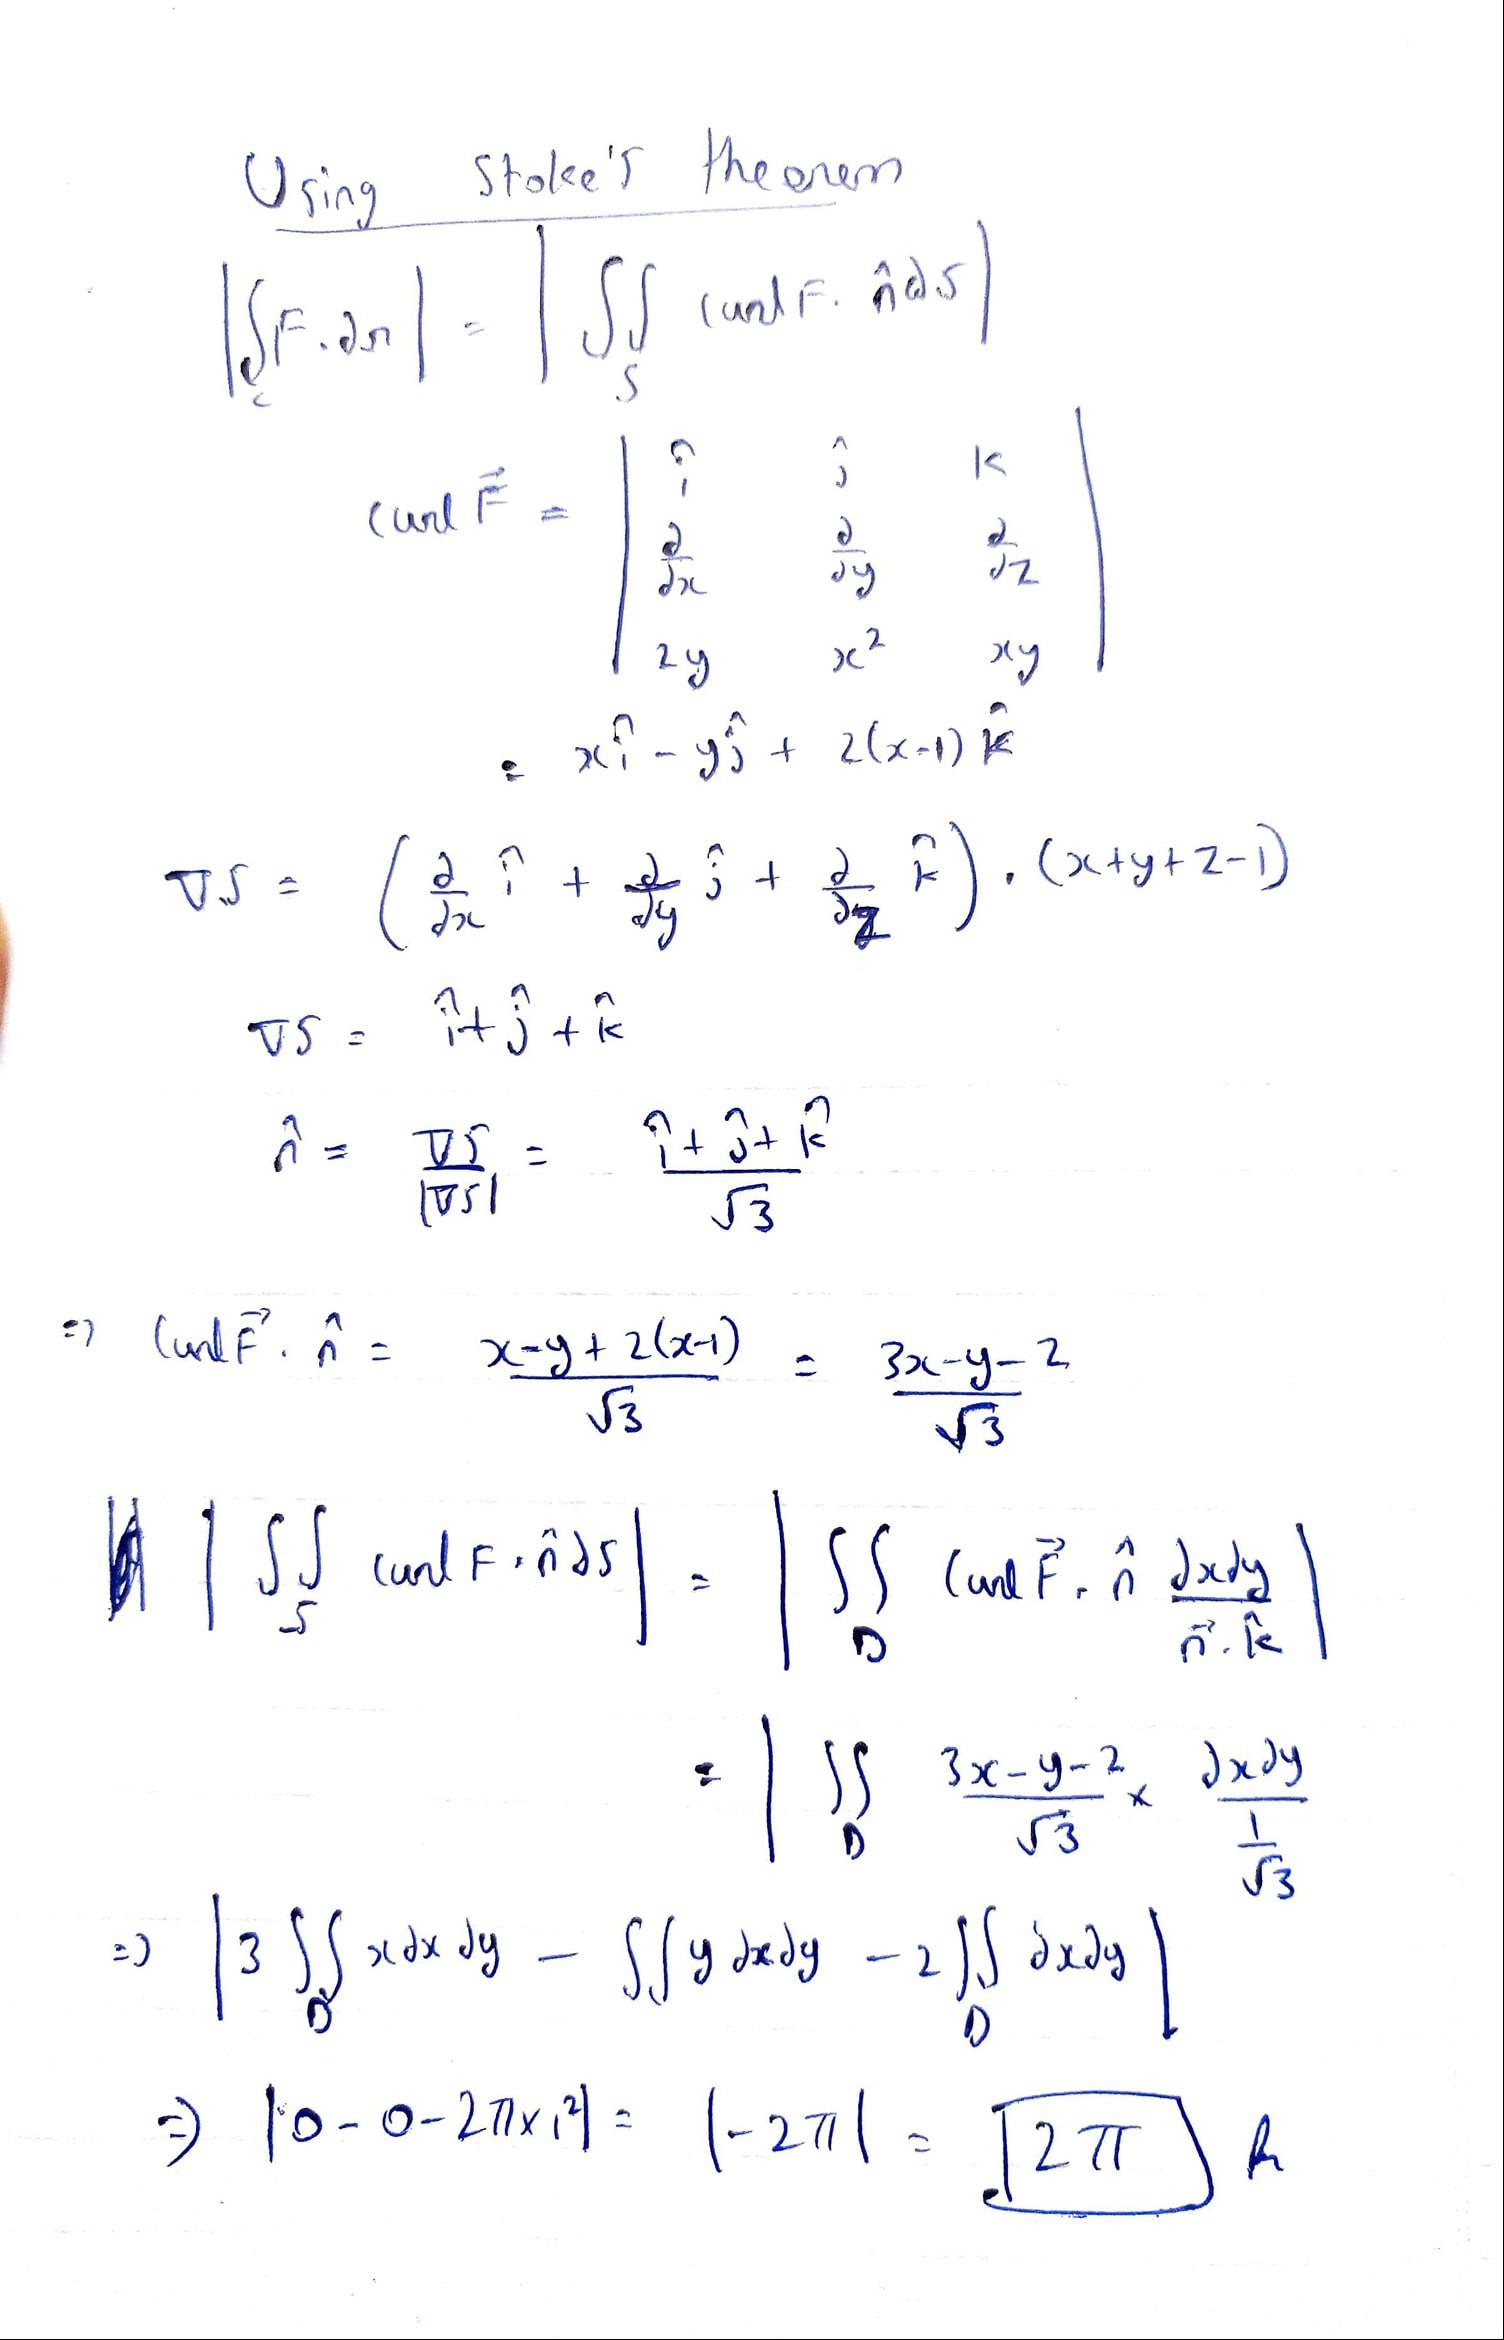 Using Stoke's theorem
|∫_c F.dr| = |∬_S curl F. n̂ds|
curl F⃗ = | î ĵ k
∂/∂x ∂/∂y ∂/∂z
2y x² xy |
= xî - yĵ + 2(x-1) k̂
∇S = (∂/∂x î + ∂/∂y ĵ + ∂/∂z k̂) . (x+y+z-1)
∇S = î + ĵ + k̂
n̂ = ∇S/|∇S| = (î + ĵ + k̂)/√3
=> Curl F⃗ . n̂ = (x-y+2(x-1))/√3 = (3x-y-2)/√3
|∬_S curl F . n̂ds| = |∬_D Curl F⃗ . n̂ dxdy/(n⃗.k̂)|
= |∬_D (3x-y-2)/√3 × dxdy/(1/√3)
=> |3∬_D xdxdy - ∬ydxdy - 2∬_D dxdy|
=> |0-0-2π×1²| = |-2π| = 2π